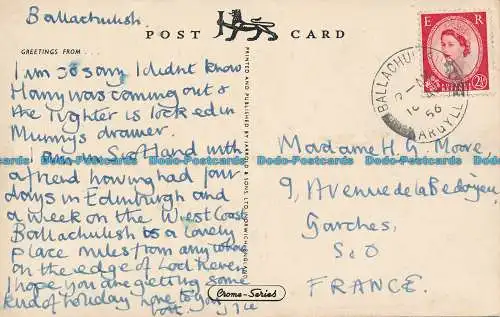 Ballachulish.
POST CARD
GREETINGS FROM...
I am so sorry I didnt know
Harry was coming out &
the lighter is locked in
Mummy's drawer.
I am in Scotland with
a friend having had four
days in Edinburgh and
a week on the West Coast
Ballachulish is a lovely
place miles from any
on the edge of Loch Leven.
I hope you are getting some
kind of holiday love to you
PRINTED AND PUBLISHED BY JARROLD & SONS LTD. NORWICH ENGLAND
Crome-Series
E R
2½D
BALLACHULISH
56
ARGYLL
Madame H. G. Moore,
9, Avenue de la Bedoyere
Garches,
S. & O
FRANCE.
Dodo-Postcards